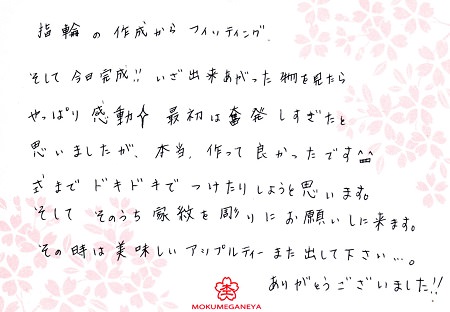 指輪の作成からフィッティング、
そして今日完成!! いざ出来あがった物を見たら
やっぱり感動☆ 最初は奮発しすぎたと
思いましたが、本当、作って良かったです^^
式までドキドキでつけたりしようと思います。
そして そのうち家紋を彫りにお願いしに来ます。
その時は美味しいアップルティーまた出して下さい…。
ありがとうございました!!
MOKUMEGANEYA